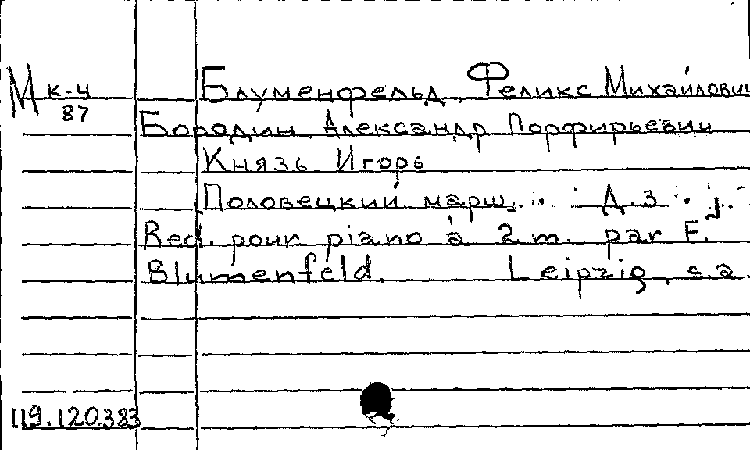 М к-ч Блуменфельд, Феликс Михайлович
87
Бородин Александр Порфирьевич
Князь Игорь
Половецкий марш. Д. 3
Red. pour piano à 2 m. par F.
Blumenfeld. Leipzig, s.a.
119.120.383